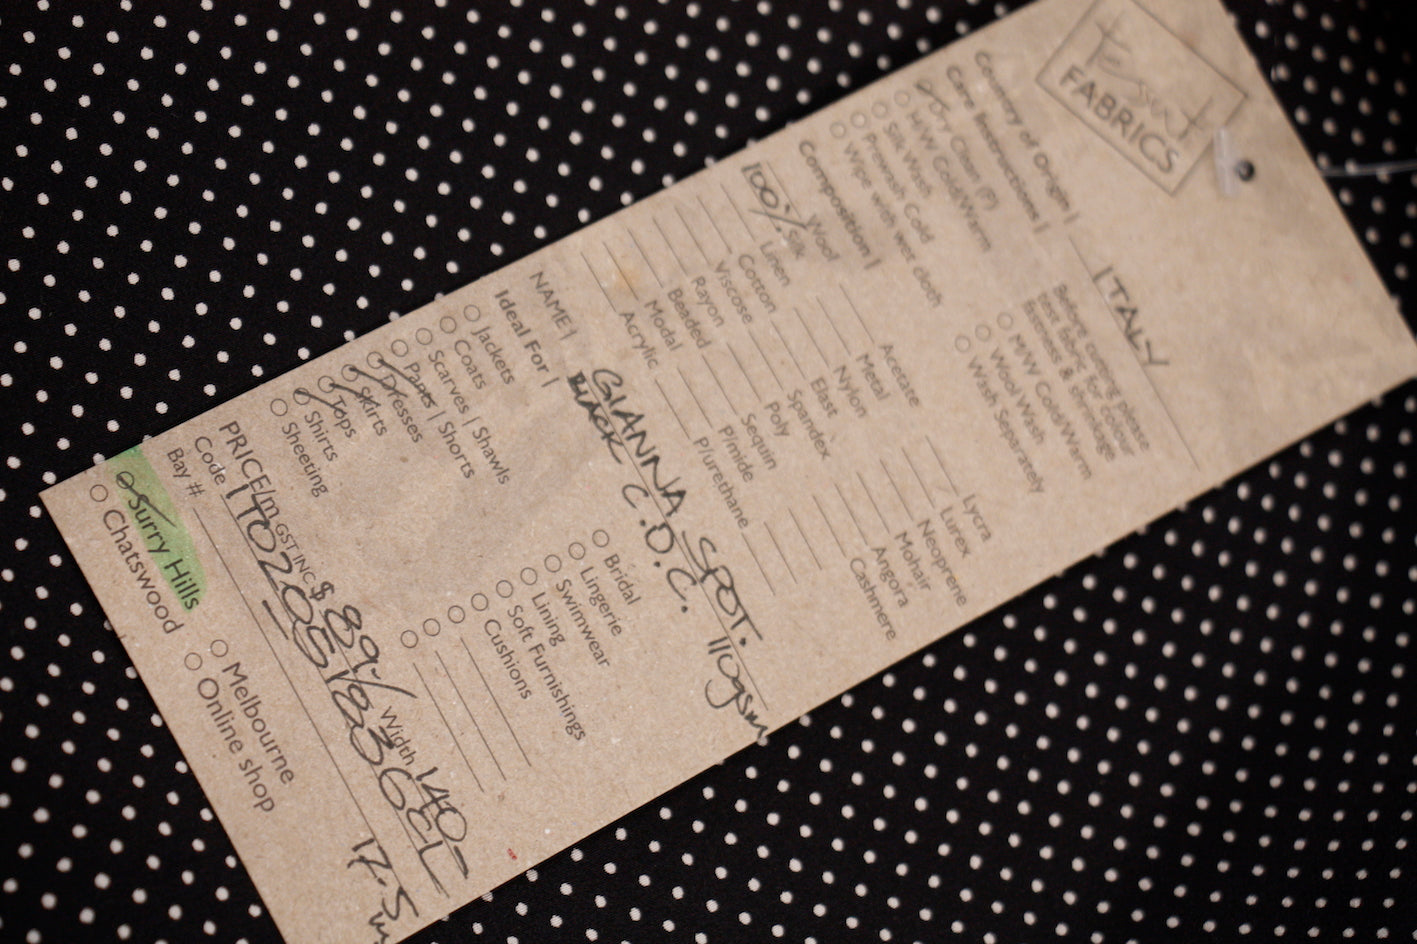 Tessuti
FABRICS
Country of Origin | ITALY
Care Instructions |
Dry Clean (P)
H/W Cold/Warm
Silk Wash
Prewash Cold
Wipe with wet cloth
Before cutting please
test fabric for colour
fastness & shrinkage
M/W Cold/Warm
Wool Wash
Wash Separately
Composition |
Wool
100% Silk
Linen
Cotton
Viscose
Rayon
Beaded
Modal
Acrylic
Acetate
Metal
Nylon
Elast
Spandex
Poly
Sequin
P/mide
P/urethane
Lycra
Lurex
Neoprene
Mohair
Angora
Cashmere
NAME | GIANNA SPOT.
BLACK C.D.C. 110gsm
Ideal For |
Jackets
Coats
Scarves | Shawls
Pants | Shorts
Dresses
Skirts
Tops
Shirts
Sheeting
Bridal
Lingerie
Swimwear
Lining
Soft Furnishings
Cushions
PRICE/m GST INC $ 89/ Width 140-
Code
Bay # 17.5m
Surry Hills
Chatswood
Melbourne
Online shop